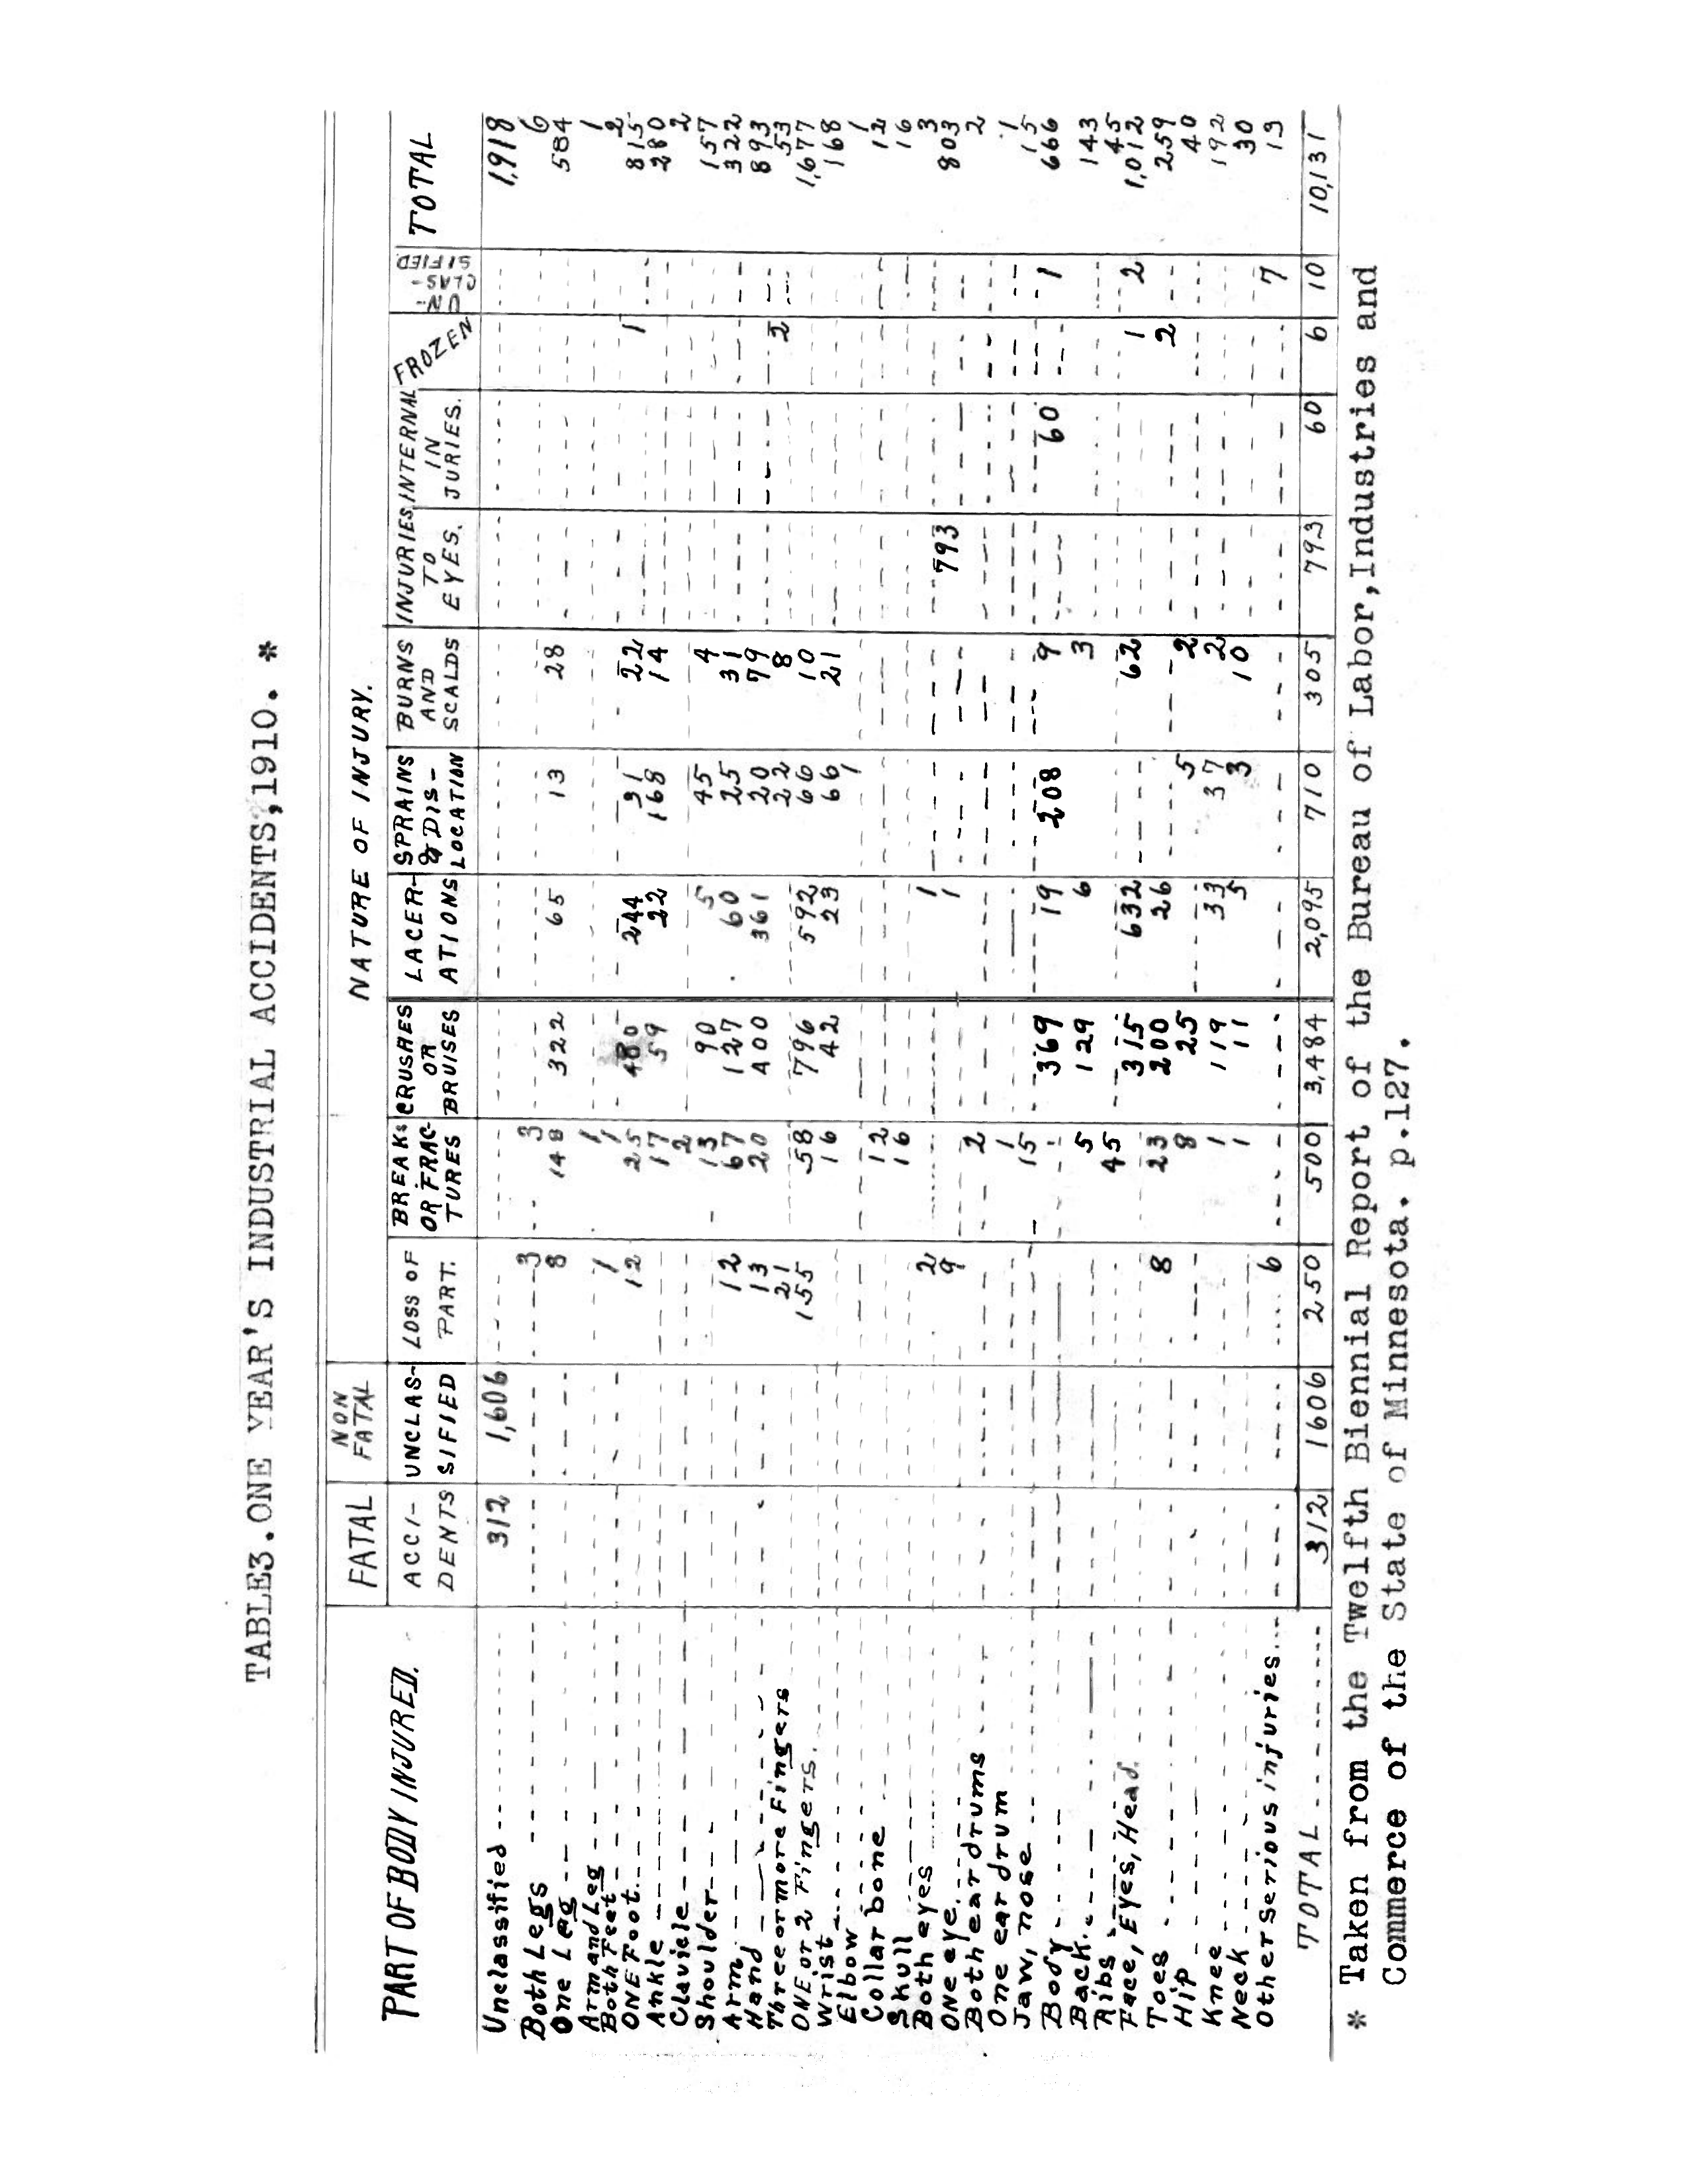 TABLE3.ONE YEAR'S INDUSTRIAL ACCIDENTS,1910. *
PART OF BODY INJURED. FATAL NON FATAL NATURE OF INJURY.
ACCI- UNCLAS- LOSS OF BREAKS CRUSHES LACER- SPRAINS BURNS INJURIES INTERNAL FROZEN UN- TOTAL
DENTS SIFIED PART. OR FRAC- OR ATIONS & DIS- AND TO IN CLAS-
TURES BRUISES LOCATION SCALDS EYES. JURIES. SIFIED
Unclassified 312 1,606 1,918
Both Legs 3 3 6
One Leg 8 148 322 65 13 28 584
Arm and Leg 1 1
Both Feet 1 1 2
ONE Foot 12 25 480 244 31 22 1 815
Ankle 17 59 22 168 14 280
Clavicle 2 2
Shoulder 13 90 5 45 4 157
Arm 12 67 127 60 25 31 322
Hand 13 20 400 361 20 79 893
Three or more Fingers 21 22 8 2 53
ONE or 2 Fingers. 155 58 796 592 66 10 1,677
Wrist 16 42 23 66 21 168
Elbow 1 1
Collar bone 12 12
Skull 16 16
Both eyes 2 1 3
ONE eye 9 1 793 803
Both ear drums 2 2
One ear drum 1 1
Jaw, nose 15 15
Body 369 19 208 9 60 1 666
Back. 5 129 6 3 143
Ribs 45 45
Face, Eyes, Head. 315 632 62 1 2 1,012
Toes 8 23 200 26 2 259
Hip 8 25 5 2 40
Knee 1 119 33 37 2 192
Neck 1 11 5 3 10 30
Other serious injuries 6 7 13
TOTAL 312 1606 250 500 3,484 2,095 710 305 793 60 6 10 10,131
* Taken from the Twelfth Biennial Report of the Bureau of Labor,Industries and
Commerce of the State of Minnesota. p.127.